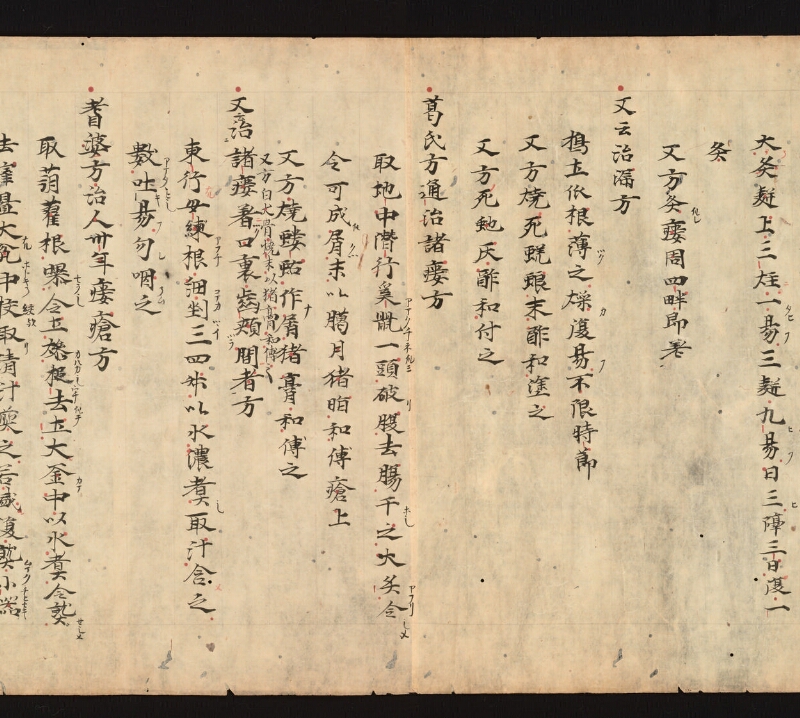 大灸麪上三炷一易三麪九易日三薄三日復一
灸
又方灸瘻周四畔即差
又云治漏方
搗土瓜根薄之燥復易不限時節
又方燒死蜣蜋末酢和塗之
又方死虵灰酢和付之
葛氏方通治諸瘻方
取地中潛行鼠一頭破腹去腸干之火炙令
令可成屑末以臈月猪脂和傅瘡上
又方燒作屑猪膏和傅之
又方白犬骨燒末以猪膏和傅之
又治諸瘻著口裏齒頰間者方
東行練根細剉三四升以水濃煮取汁含之
數吐易勿咽之
耆婆方治人卅年瘻瘡方
取葫藋根曝令去土大釜中以水煮令熟
去大瓮中取清汁煎之器